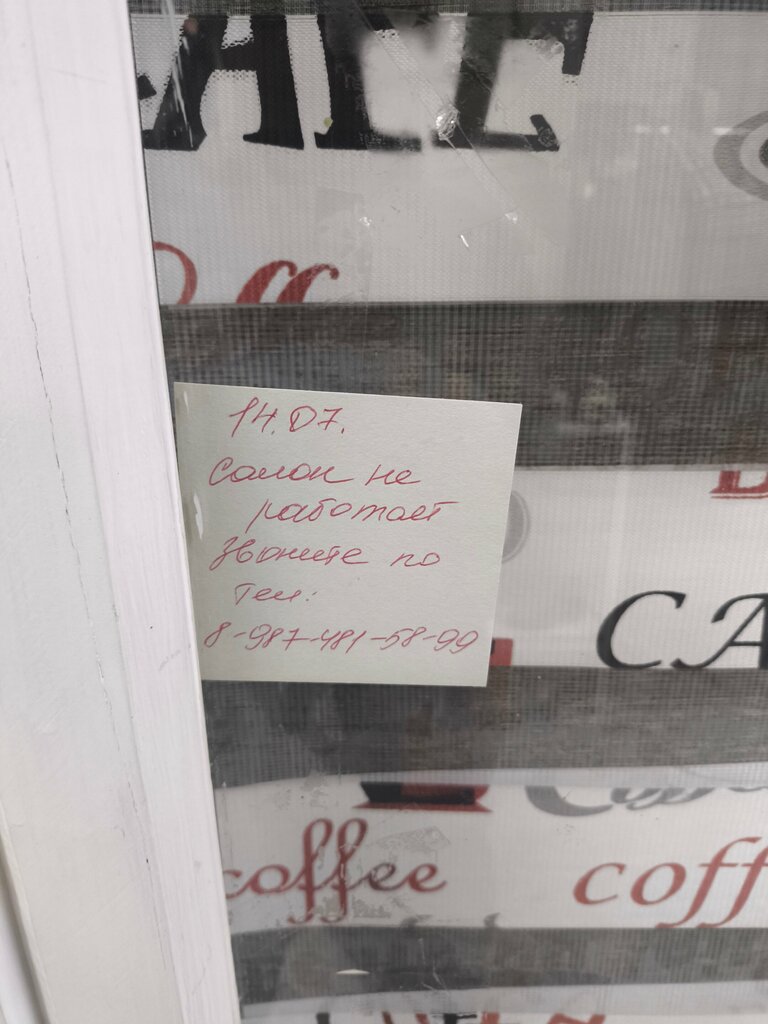 CAFE
14.07.
Салон не
работает
Звоните по
тел:
8-987-481-58-99
CA
Coffee
coffee
coff